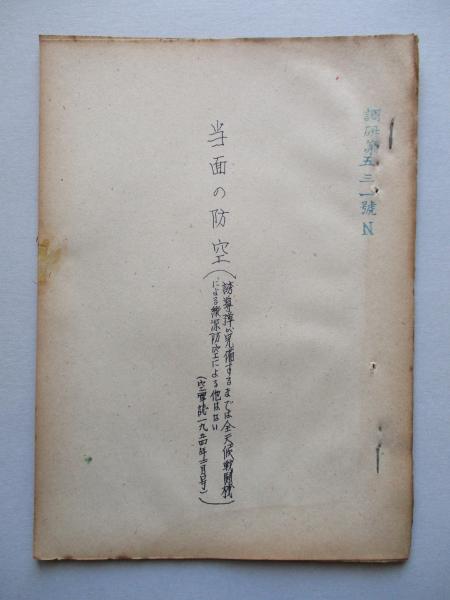 調研第五三一號 N
当面の防空
(誘導弾が完備するまでは全天候戦闘機
による縦深防空による他はない
(空軍誌一九五四年二月号))